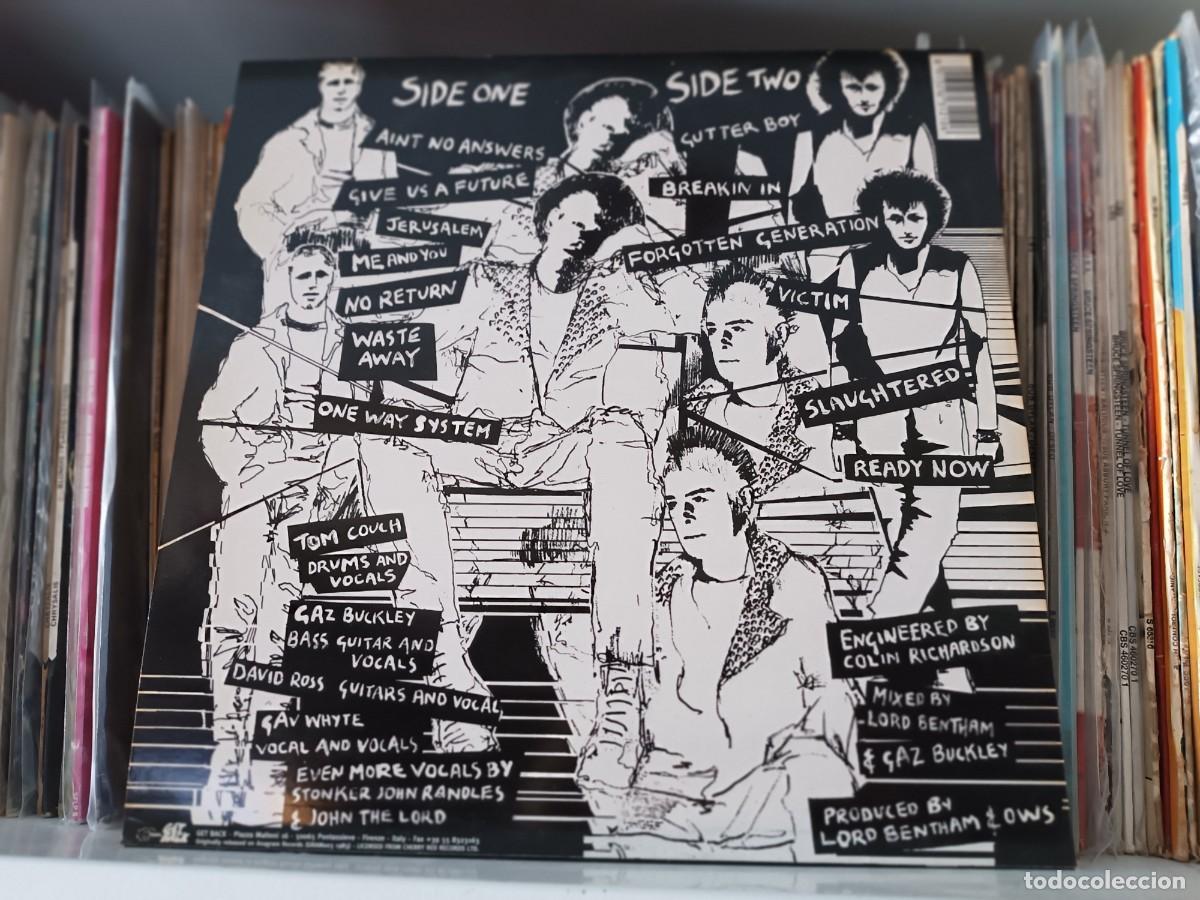 SIDE ONE
AINT NO ANSWERS
GIVE US A FUTURE
JERUSALEM
ME AND YOU
NO RETURN
WASTE
AWAY
ONE WAY SYSTEM
SIDE TWO
GUTTER BOY
BREAKIN IN
FORGOTTEN GENERATION
VICTIM
SLAUGHTERED!
READY NOW
TOM COUCH
DRUMS AND
VOCALS
GAZ BUCKLEY
BASS GUITAR AND
VOCALS
DAVID ROSS GUITARS AND VOCAL
GAV WHYTE
VOCAL AND VOCALS
EVEN MORE VOCALS BY
STONKER JOHN RANDLES
& JOHN THE LORD
ENGINEERED BY
COLIN RICHARDSON
MIXED BY
LORD BENTHAM
& GAZ BUCKLEY
PRODUCED BY
LORD BENTHAM & OWS
GET BACK - Piazza
Firenze - Italy - Fax
Originally released on Anagram Records
LICENSED FROM CHERRY RED RECORDS LTD.
TUNNEL OF LOVE
CBS 460270 1
CBS 460270 1
todocoleccion